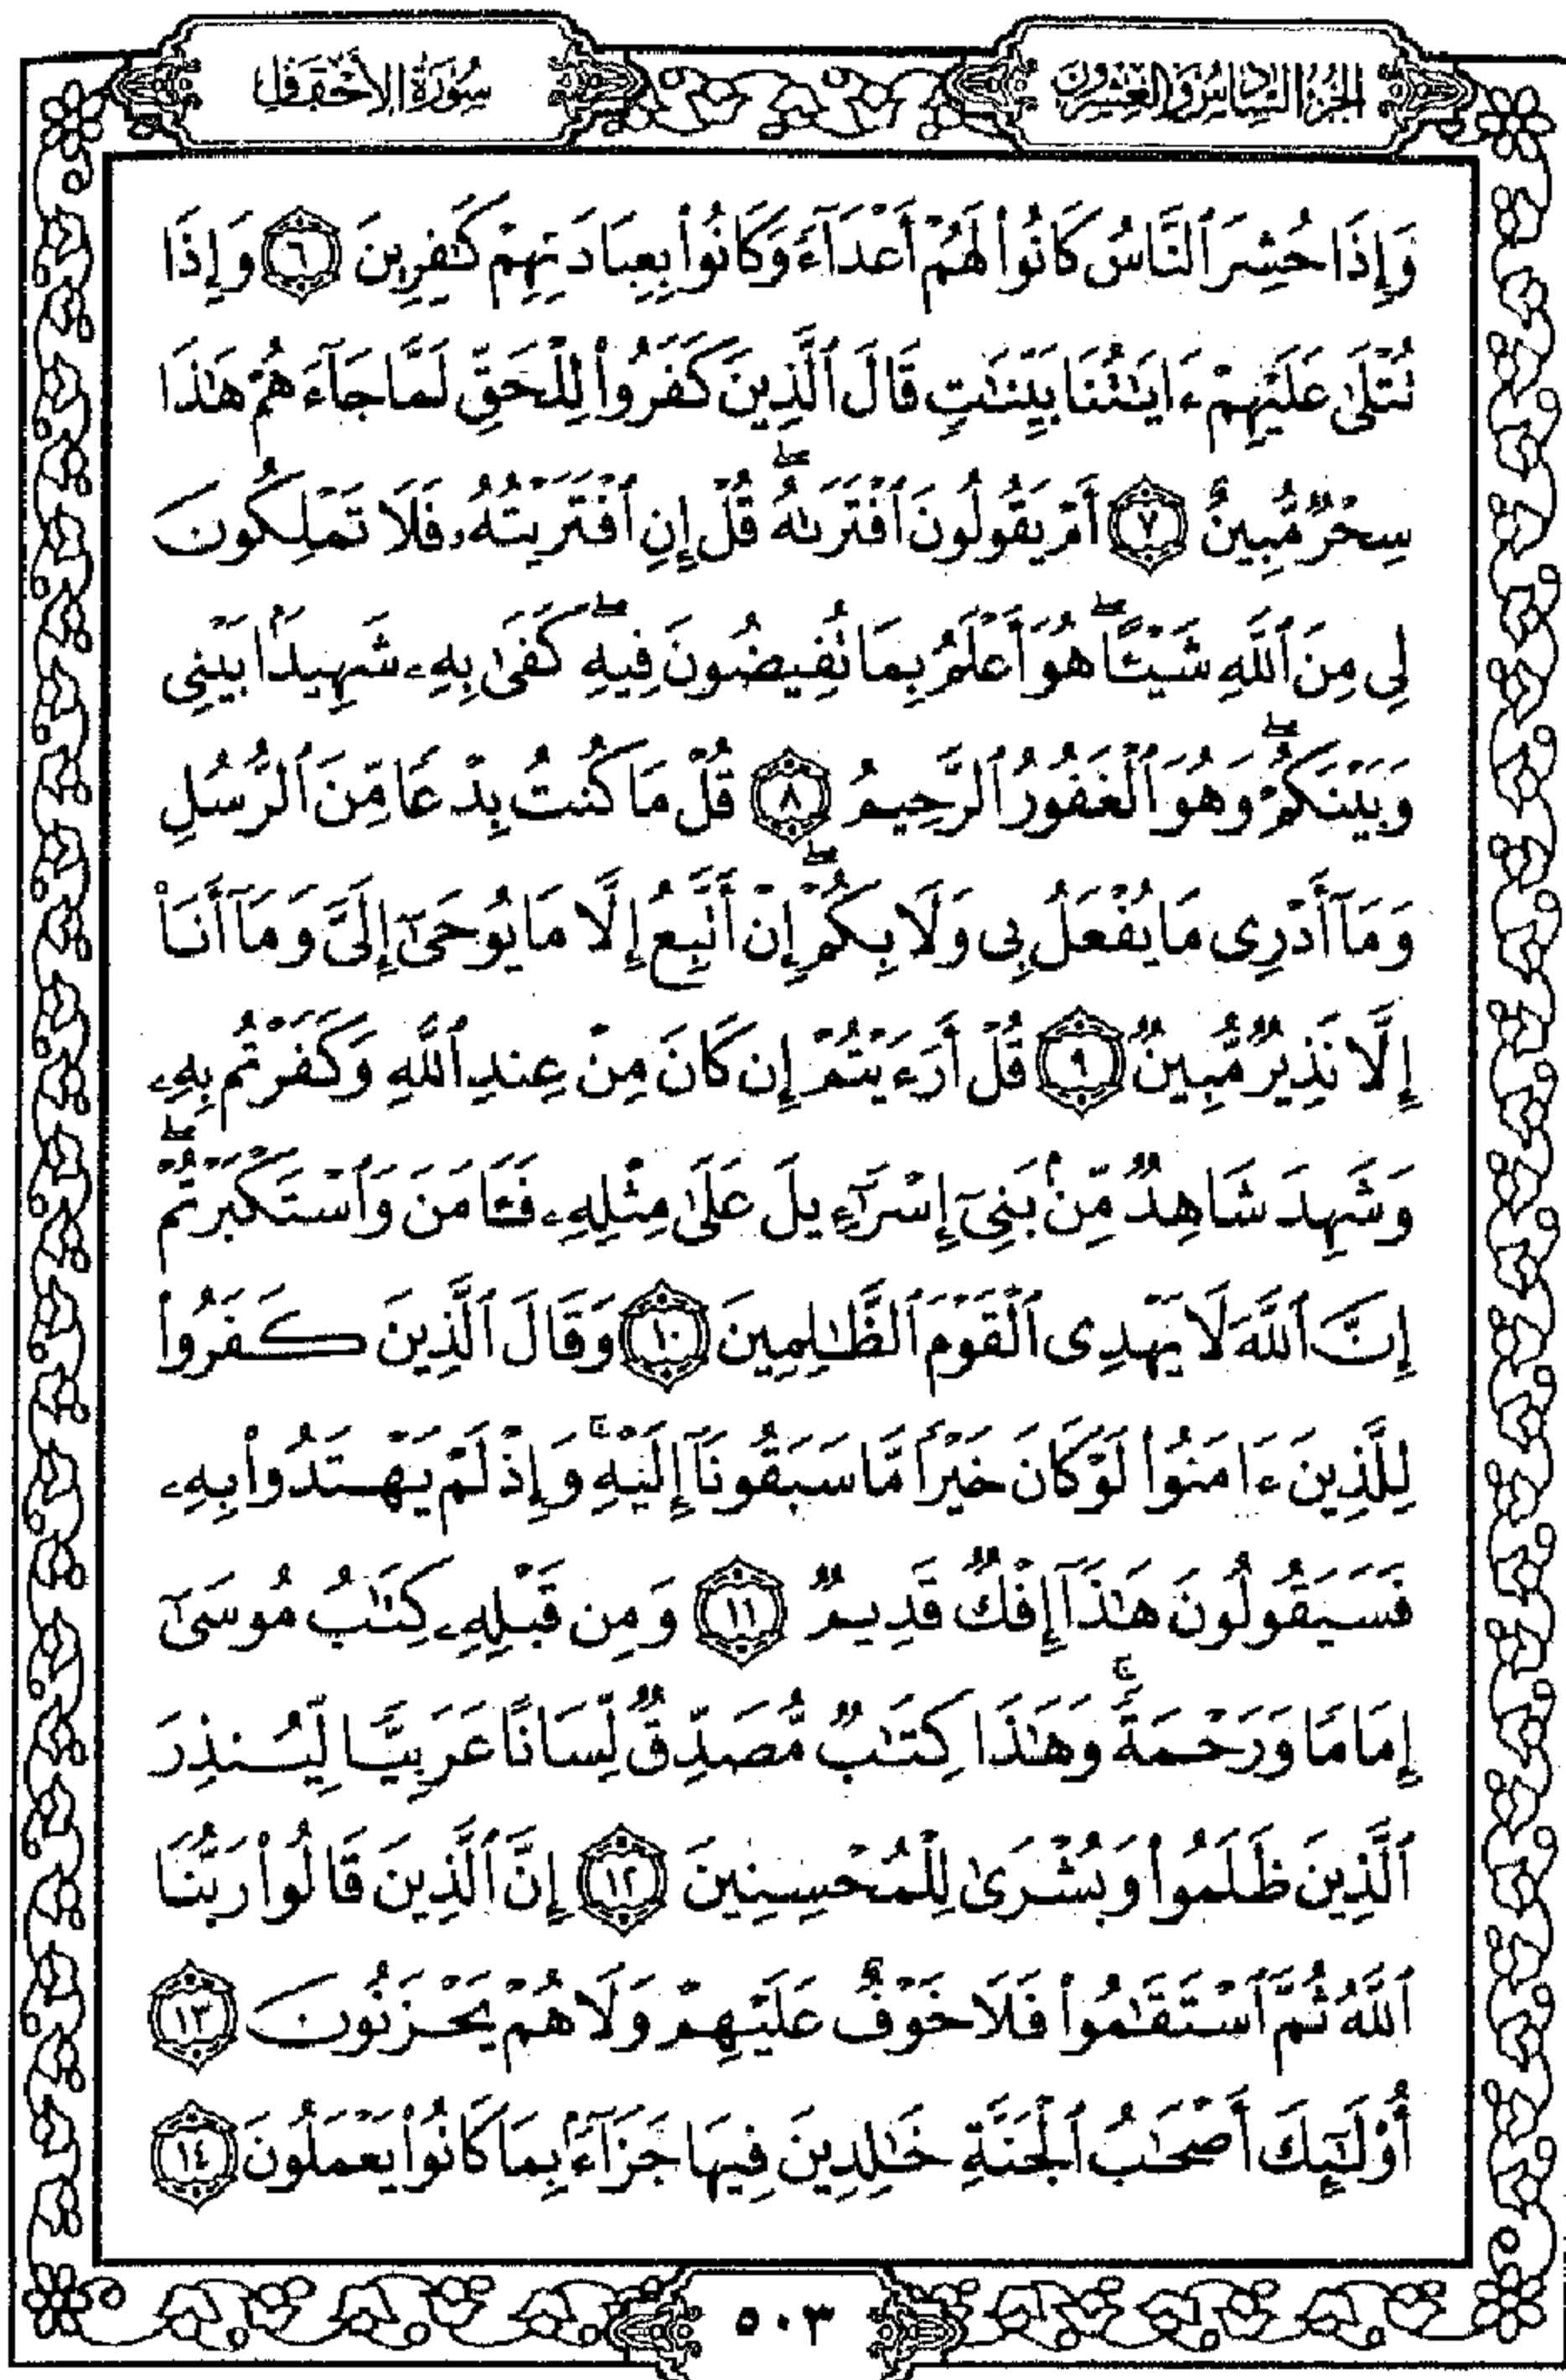 الجزء السادس والعشرون
سورة الأحقاف
وَإِذَا حُشِرَ ٱلنَّاسُ كَانُوا۟ لَهُمْ أَعْدَآءً وَكَانُوا۟ بِعِبَادَتِهِمْ كَٰفِرِينَ ٦ وَإِذَا
تُتْلَىٰ عَلَيْهِمْ ءَايَٰتُنَا بَيِّنَٰتٍ قَالَ ٱلَّذِينَ كَفَرُوا۟ لِلْحَقِّ لَمَّا جَآءَهُمْ هَٰذَا
سِحْرٌ مُّبِينٌ ٧ أَمْ يَقُولُونَ ٱفْتَرَىٰهُ ۖ قُلْ إِنِ ٱفْتَرَيْتُهُۥ فَلَا تَمْلِكُونَ
لِى مِنَ ٱللَّهِ شَيْـًٔا ۖ هُوَ أَعْلَمُ بِمَا تُفِيضُونَ فِيهِ ۖ كَفَىٰ بِهِۦ شَهِيدًۢا بَيْنِى
وَبَيْنَكُمْ ۖ وَهُوَ ٱلْغَفُورُ ٱلرَّحِيمُ ٨ قُلْ مَا كُنتُ بِدْعًا مِّنَ ٱلرُّسُلِ
وَمَآ أَدْرِى مَا يُفْعَلُ بِى وَلَا بِكُمْ ۖ إِنْ أَتَّبِعُ إِلَّا مَا يُوحَىٰٓ إِلَىَّ وَمَآ أَنَا۠
إِلَّا نَذِيرٌ مُّبِينٌ ٩ قُلْ أَرَءَيْتُمْ إِن كَانَ مِنْ عِندِ ٱللَّهِ وَكَفَرْتُم بِهِۦ
وَشَهِدَ شَاهِدٌ مِّنۢ بَنِىٓ إِسْرَٰٓءِيلَ عَلَىٰ مِثْلِهِۦ فَـَٔامَنَ وَٱسْتَكْبَرْتُمْ ۖ
إِنَّ ٱللَّهَ لَا يَهْدِى ٱلْقَوْمَ ٱلظَّٰلِمِينَ ١٠ وَقَالَ ٱلَّذِينَ كَفَرُوا۟
لِلَّذِينَ ءَامَنُوا۟ لَوْ كَانَ خَيْرًا مَّا سَبَقُونَآ إِلَيْهِ ۚ وَإِذْ لَمْ يَهْتَدُوا۟ بِهِۦ
فَسَيَقُولُونَ هَٰذَآ إِفْكٌ قَدِيمٌ ١١ وَمِن قَبْلِهِۦ كِتَٰبُ مُوسَىٰٓ
إِمَامًا وَرَحْمَةً ۚ وَهَٰذَا كِتَٰبٌ مُّصَدِّقٌ لِّسَانًا عَرَبِيًّا لِّيُنذِرَ
ٱلَّذِينَ ظَلَمُوا۟ وَبُشْرَىٰ لِلْمُحْسِنِينَ ١٢ إِنَّ ٱلَّذِينَ قَالُوا۟ رَبُّنَا
ٱللَّهُ ثُمَّ ٱسْتَقَٰمُوا۟ فَلَا خَوْفٌ عَلَيْهِمْ وَلَا هُمْ يَحْزَنُونَ ١٣
أُو۟لَٰٓئِكَ أَصْحَٰبُ ٱلْجَنَّةِ خَٰلِدِينَ فِيهَا جَزَآءًۢ بِمَا كَانُوا۟ يَعْمَلُونَ ١٤
٥٠٣